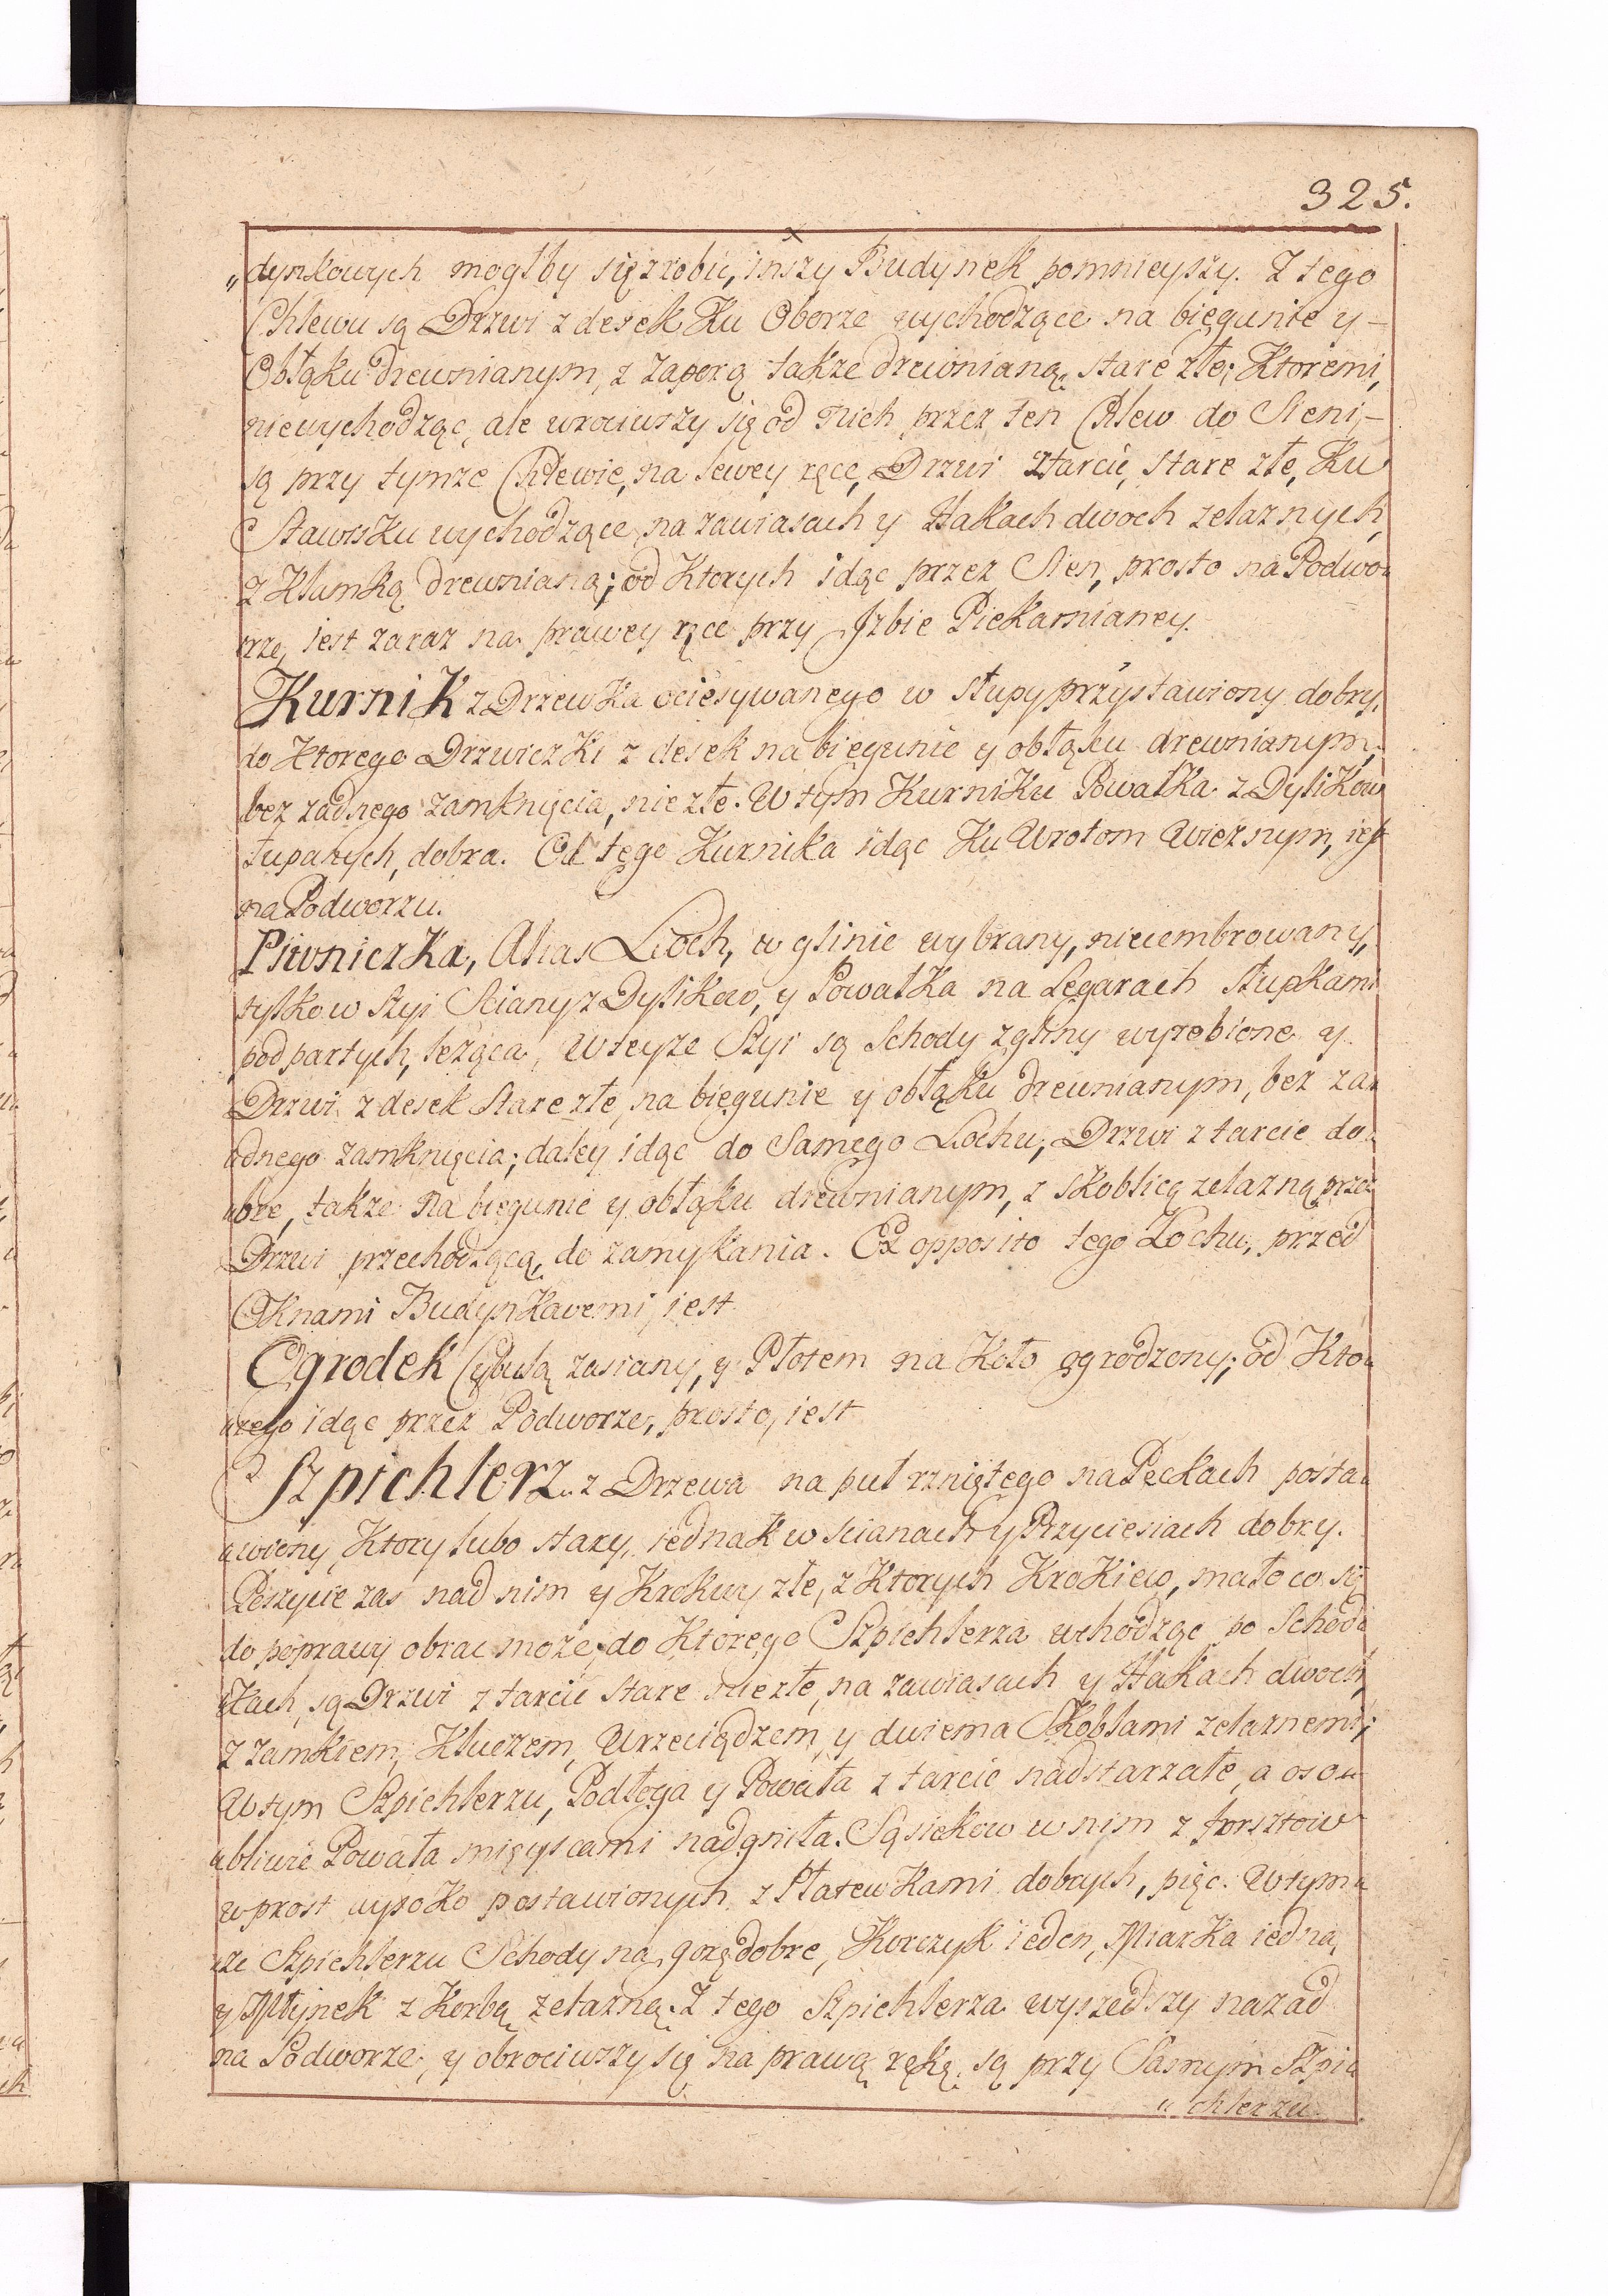 325.
„dynkowych mogłby się zrobić, inszy Budynek pomnieyszy. Z tego
Chlewu są Drzwi z desek Ku Oborze wychodzące na biegunie y –
Obłąku drewnianym, z zaporą także drewnianą, stare złe; Ktoremi,
niewychodząc, ale wrociwszy się od nich przez ten Chlew do Sieni, –
są przy tymże Chlewie, na lewey ręce, Drzwi z tarcic, stare złe, Ku
Stawisku wychodzące, na zawiasach y Hakach dwoch żelaznych,
z Klamką drewnianą; od Ktorych idąc przez Sien, prosto na Podwo„
rze, iest zaraz na prawey ręce przy Izbie Piekarnianey.
Kurnik z Drzewka ociesywanego w słupy przystawiony dobry,
do Ktorego Drzwiczki z desek na biegunie y obłąku drewnianym,
bez żadnego zamknięcia, nie złe. W tym Kurniku Powałka z Dylikow
łupanych, dobra. Od tego Kurnika idąc Ku Wrotom Wieznym, iest
na Podworzu.
Piwniczka, Alias Loch, w glinie wybrany, niecembrowany,
tylko w Szyi Sciany z Dylikow, y Powałka na Legarach słupkami
podpartych, leżąca, W teyże Szyi są Schody z gliny wyrobione y
Drzwi z desek stare złe, na biegunie y obłąku drewnianym, bez ża„
„dnego zamknięcia; daley idąc do Samego Lochu, Drzwi z tarcic do„
„bre, także na biegunie y obłąku drewnianym, z skoblicą żelazną przez
Drzwi przechodzącą, do zamykania. Ex opposito tego Lochu, przed
Oknami Budynkowemi, iest
Ogrodek Cybulą zasiany, y Płotem na Koło ogrodzony; od Kto„
„rego idąc przez Podworze, prosto, iest
Szpichlerz z Drzewa na puł rzniętego na Peckach posta„
„wiony, Ktory lubo stary, iednak w scianach y Przyciesiach dobry.
Poszycie zaś nad nim y Krokwy złe, z Ktorych Krokiew, mało co się
do poprawy obrac może, do Ktorego Szpichlerza wchodząc po Schod„
„kach, są Drzwi z tarcic stare nie złe, na zawiasach y Hakach dwoch,
z zamkiem, Kluczem, Wrzeciądzem, y dwiema Skoblami żelaznemi;
W tym Szpichlerzu, Podłoga y Powała z tarcic nadstarzałe, a oso„
„bliwie Powała mięyscami nadgniła. Sąsiekow w nim z forsztow
wprost wysoko postawionych z Płatewkami dobrych, pięc. W tym„
„że Szpichlerzu Schody na gorę dobre, Korczyk ieden, Miarka iedna,
y Młynek z Korbą żelazną. Z tego Szpichlerza wyszedszy nazad
na Podworze, y obrociwszy się na prawą rękę, są przy Samym Szpi„
„chlerzu